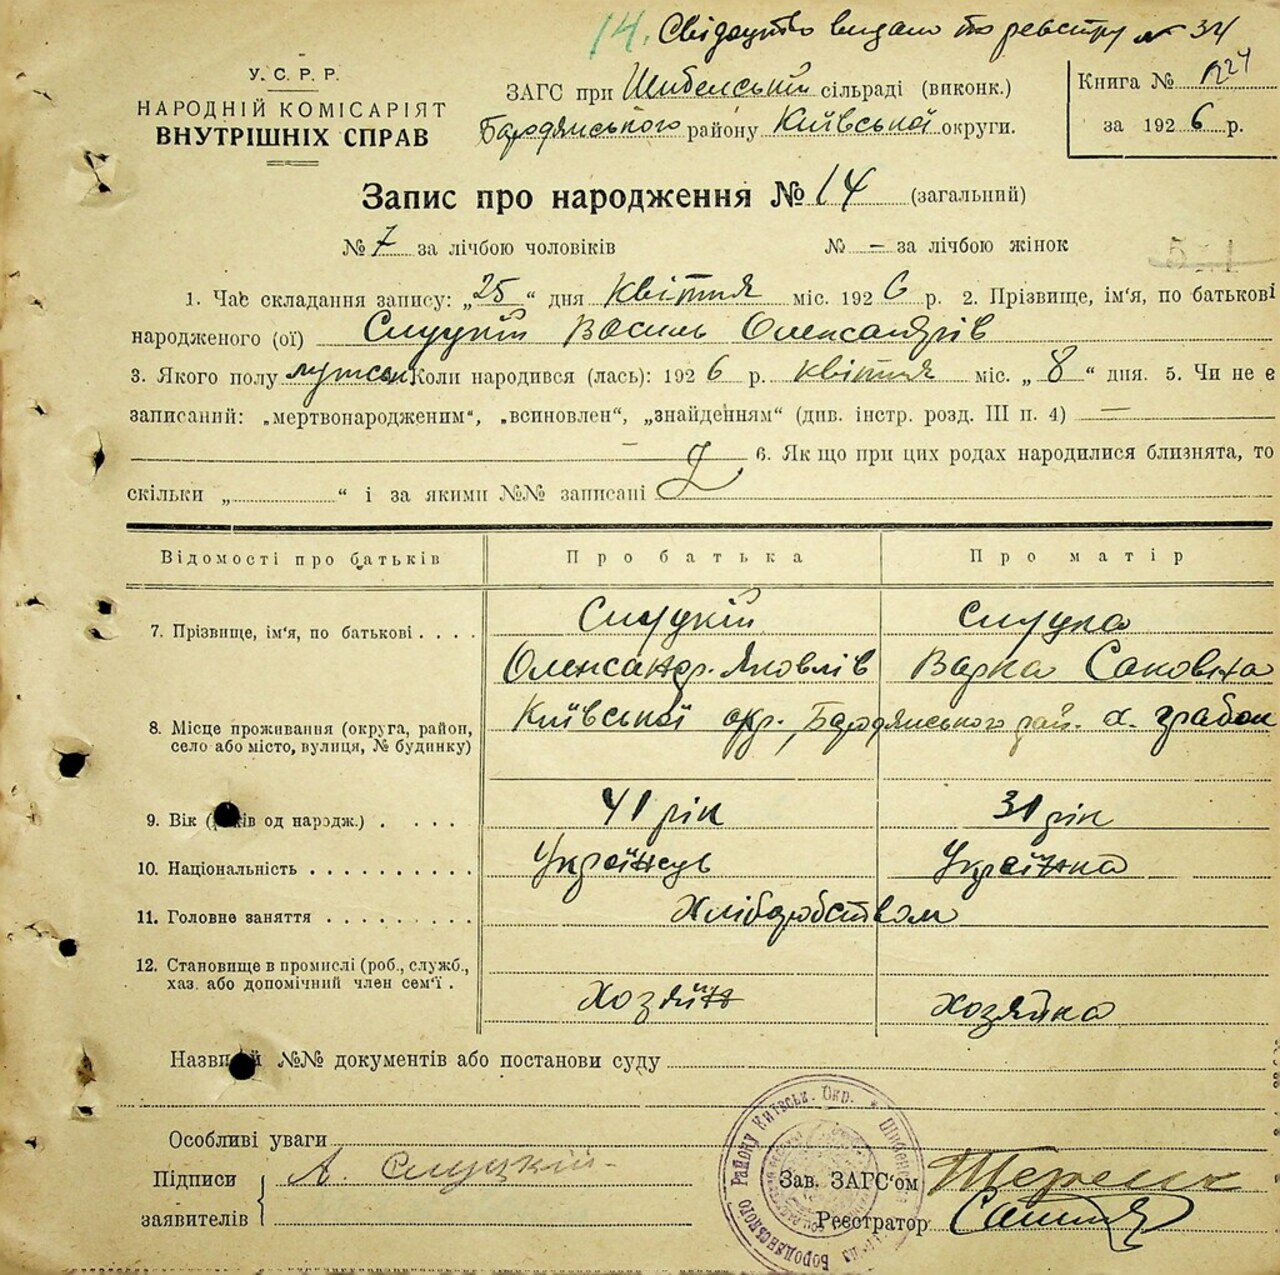 14. Свідоцтво видано по реєстру № 34
У. С. Р. Р.
НАРОДНІЙ КОМІСАРІЯТ
ВНУТРІШНІХ СПРАВ
ЗАГС при Шибенській сільраді (виконк.)
Бародянського району Київської округи.
Книга №
за 1926 р.
Запис про народження № 14 (загальний)
№ 7 за лічбою чоловіків № — за лічбою жінок
1. Час складання запису: „25“ дня Квітня міс. 1926 р. 2. Прізвище, ім'я, по батькові
народженого (ої) Слуцкій Василь Олександрів
3. Якого полу мужск Коли народився (лась): 1926 р. квітня міс. „8“ дня. 5. Чи не є
записаний: „мертвонародженим“, „всиновлен“, „знайденням“ (див. інстр. розд. III п. 4) —
— 6. Як що при цих родах народилися близнята, то
скільки „ “ і за якими №№ записані
Відомості про батьків Про батька Про матір
7. Прізвище, ім'я, по батькові . . . . Слуцкій Слуцка
Олександр. Яковлів Варка Саковна
8. Місце проживання (округа, район, село або місто, вулиця, № будинку) Київської окр., Бародянського рай. х. Грабок
9. Вік (років од народж.) . . . . 41 рік 31 рік
10. Національність . . . . . . . . . . Українець Українка
11. Головне заняття . . . . . . . . . Хліборобством
12. Становище в промислі (роб., служб.,
хаз. або допомічний член сем'ї . Хозяїн Хозяйка
Назви й №№ документів або постанови суду
Особливі уваги
Підписи А. Слуцкій
заявителів
Зав. ЗАГС'ом
Реєстратор
Бородянського Району Київськ. Окр.